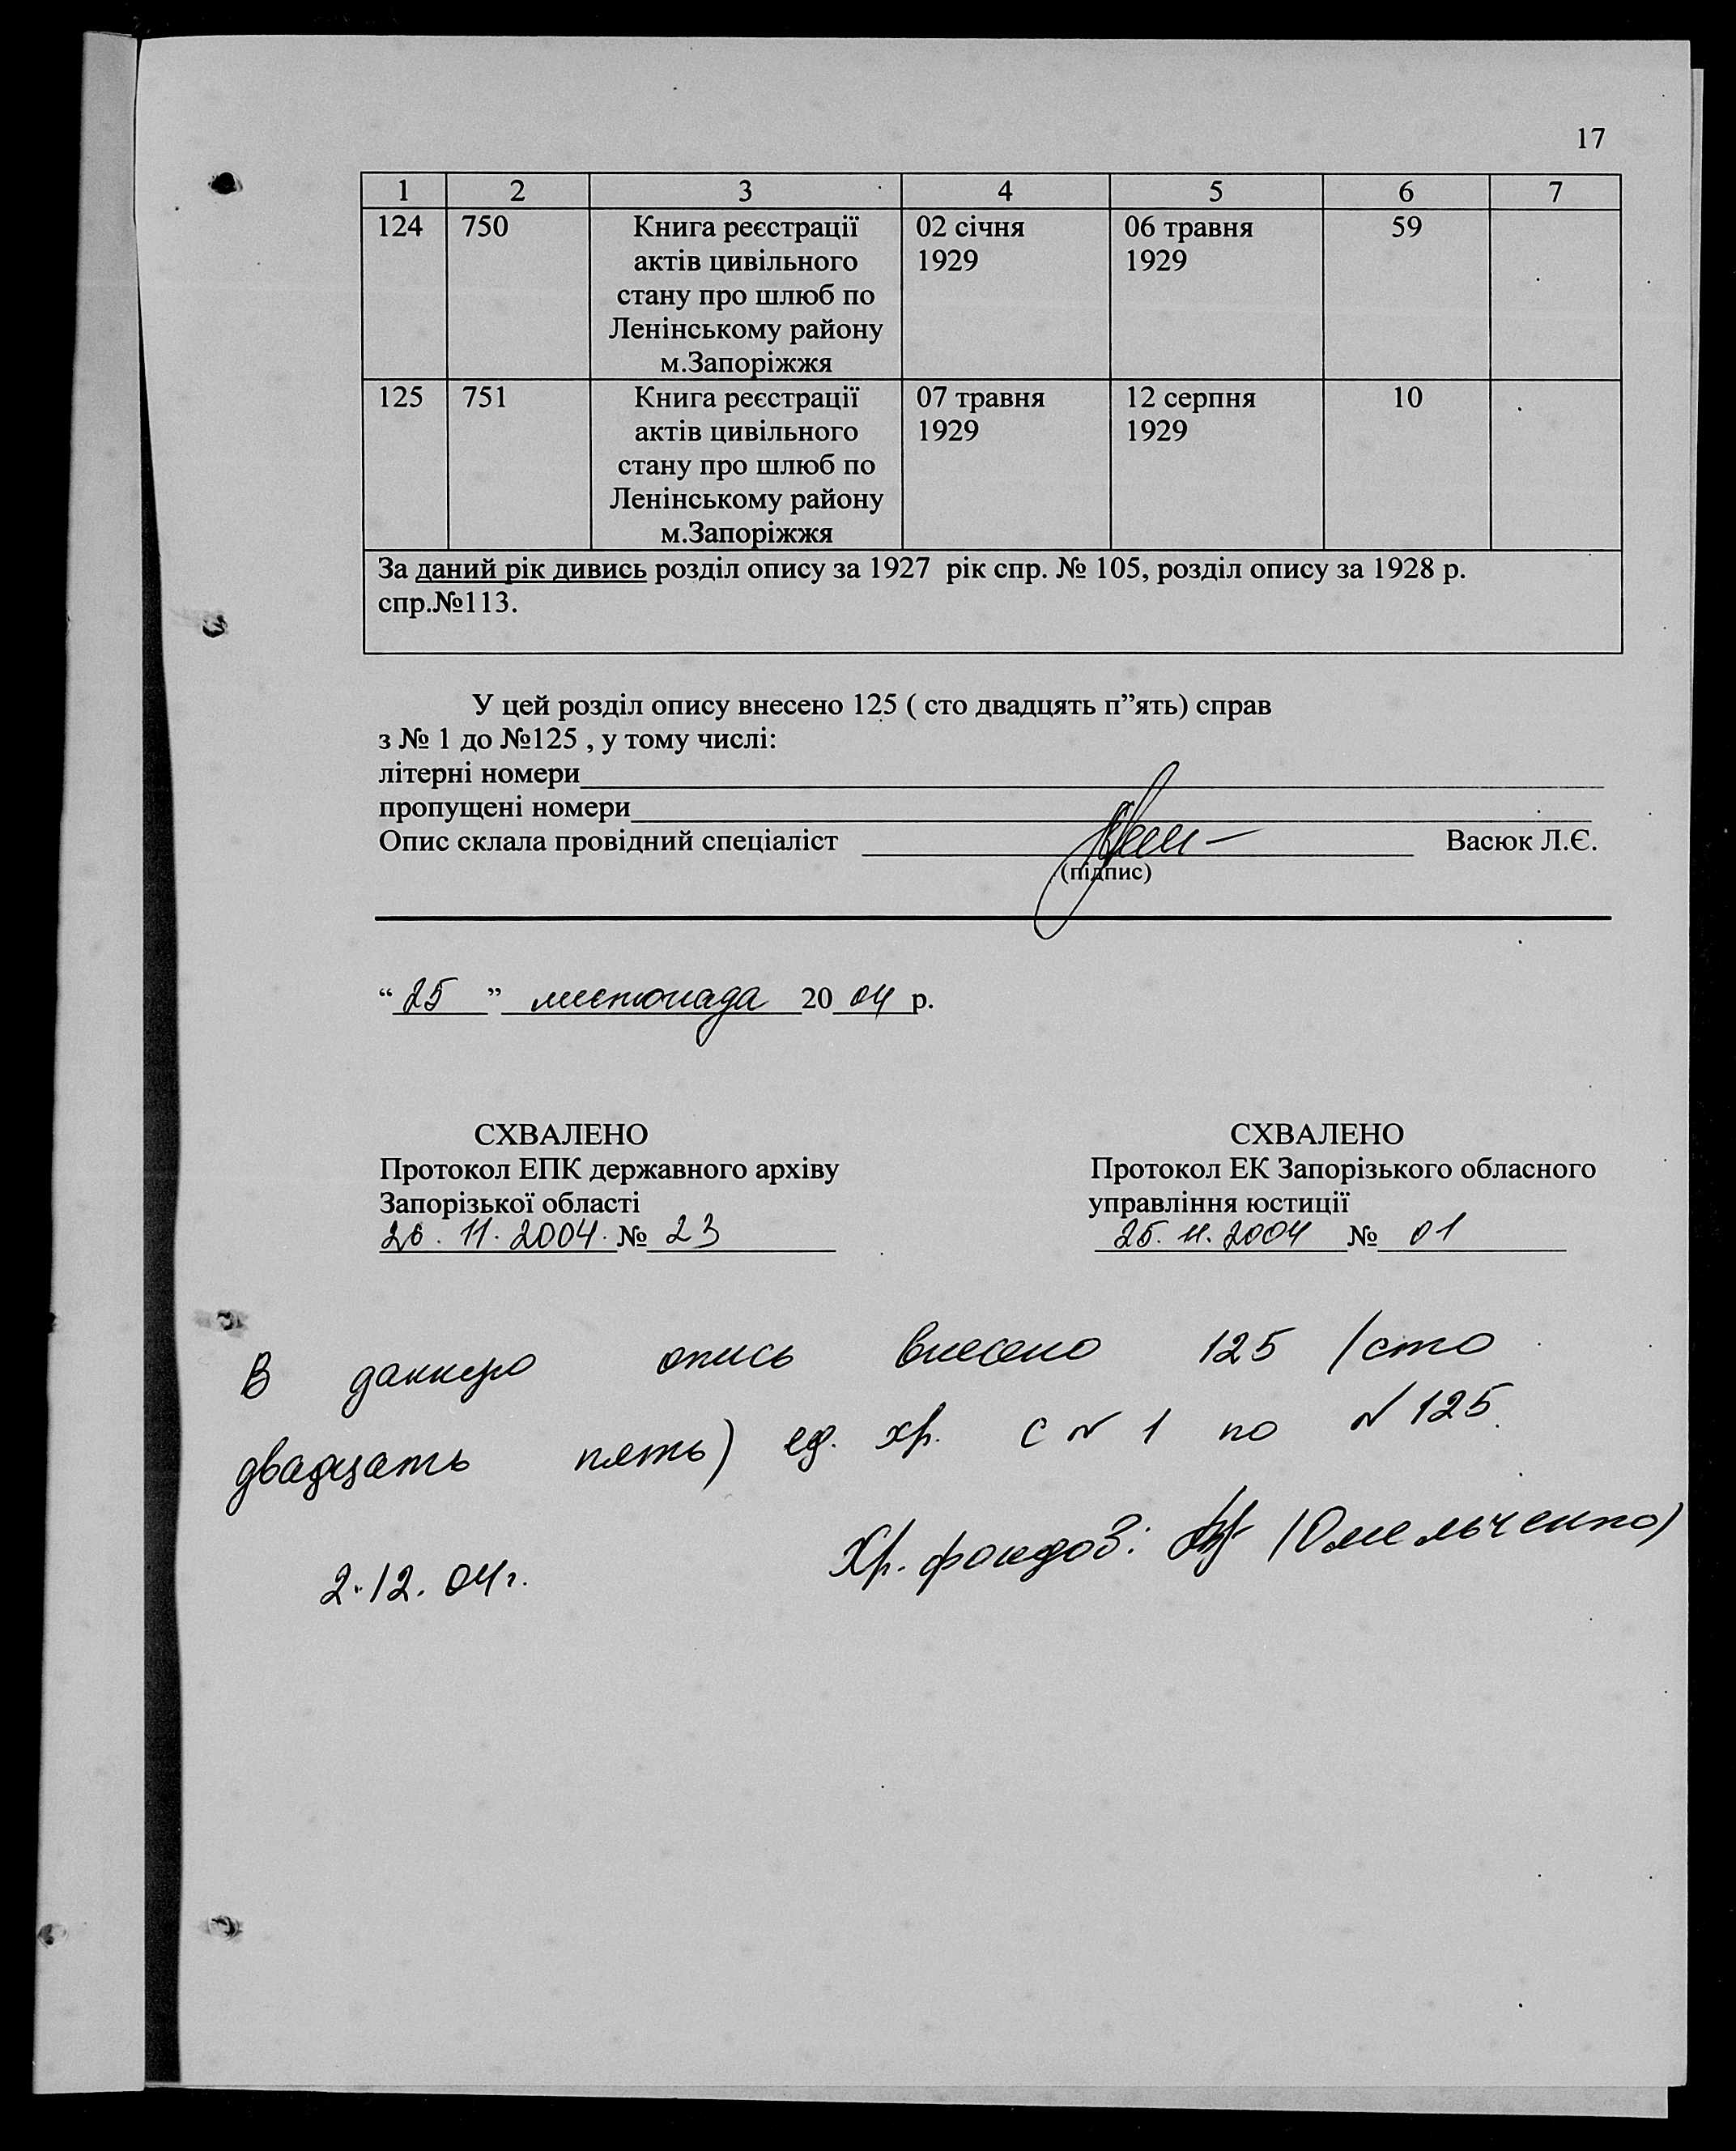 17
1 2 3 4 5 6 7
124 750 Книга реєстрації 02 січня 06 травня 59
актів цивільного 1929 1929
стану про шлюб по
Ленінському району
м.Запоріжжя
125 751 Книга реєстрації 07 травня 12 серпня 10
актів цивільного 1929 1929
стану про шлюб по
Ленінському району
м.Запоріжжя
За даний рік дивись розділ опису за 1927 рік спр. № 105, розділ опису за 1928 р.
спр.№113.
У цей розділ опису внесено 125 ( сто двадцять п”ять) справ
з № 1 до №125 , у тому числі:
літерні номери
пропущені номери
Опис склала провідний спеціаліст Васюк Л.Є.
(підпис)
“ 25 ” листопада 20 04 р.
СХВАЛЕНО
Протокол ЕПК державного архіву
Запорізької області
26. 11. 2004. № 23
СХВАЛЕНО
Протокол ЕК Запорізького обласного
управління юстиції
25. 11. 2004 № 01
В данную опись внесено 125 /сто
двадцать пять) ед. хр. с № 1 по № 125.
Хр. фондов: (Омельченко)
2.12. 04г.